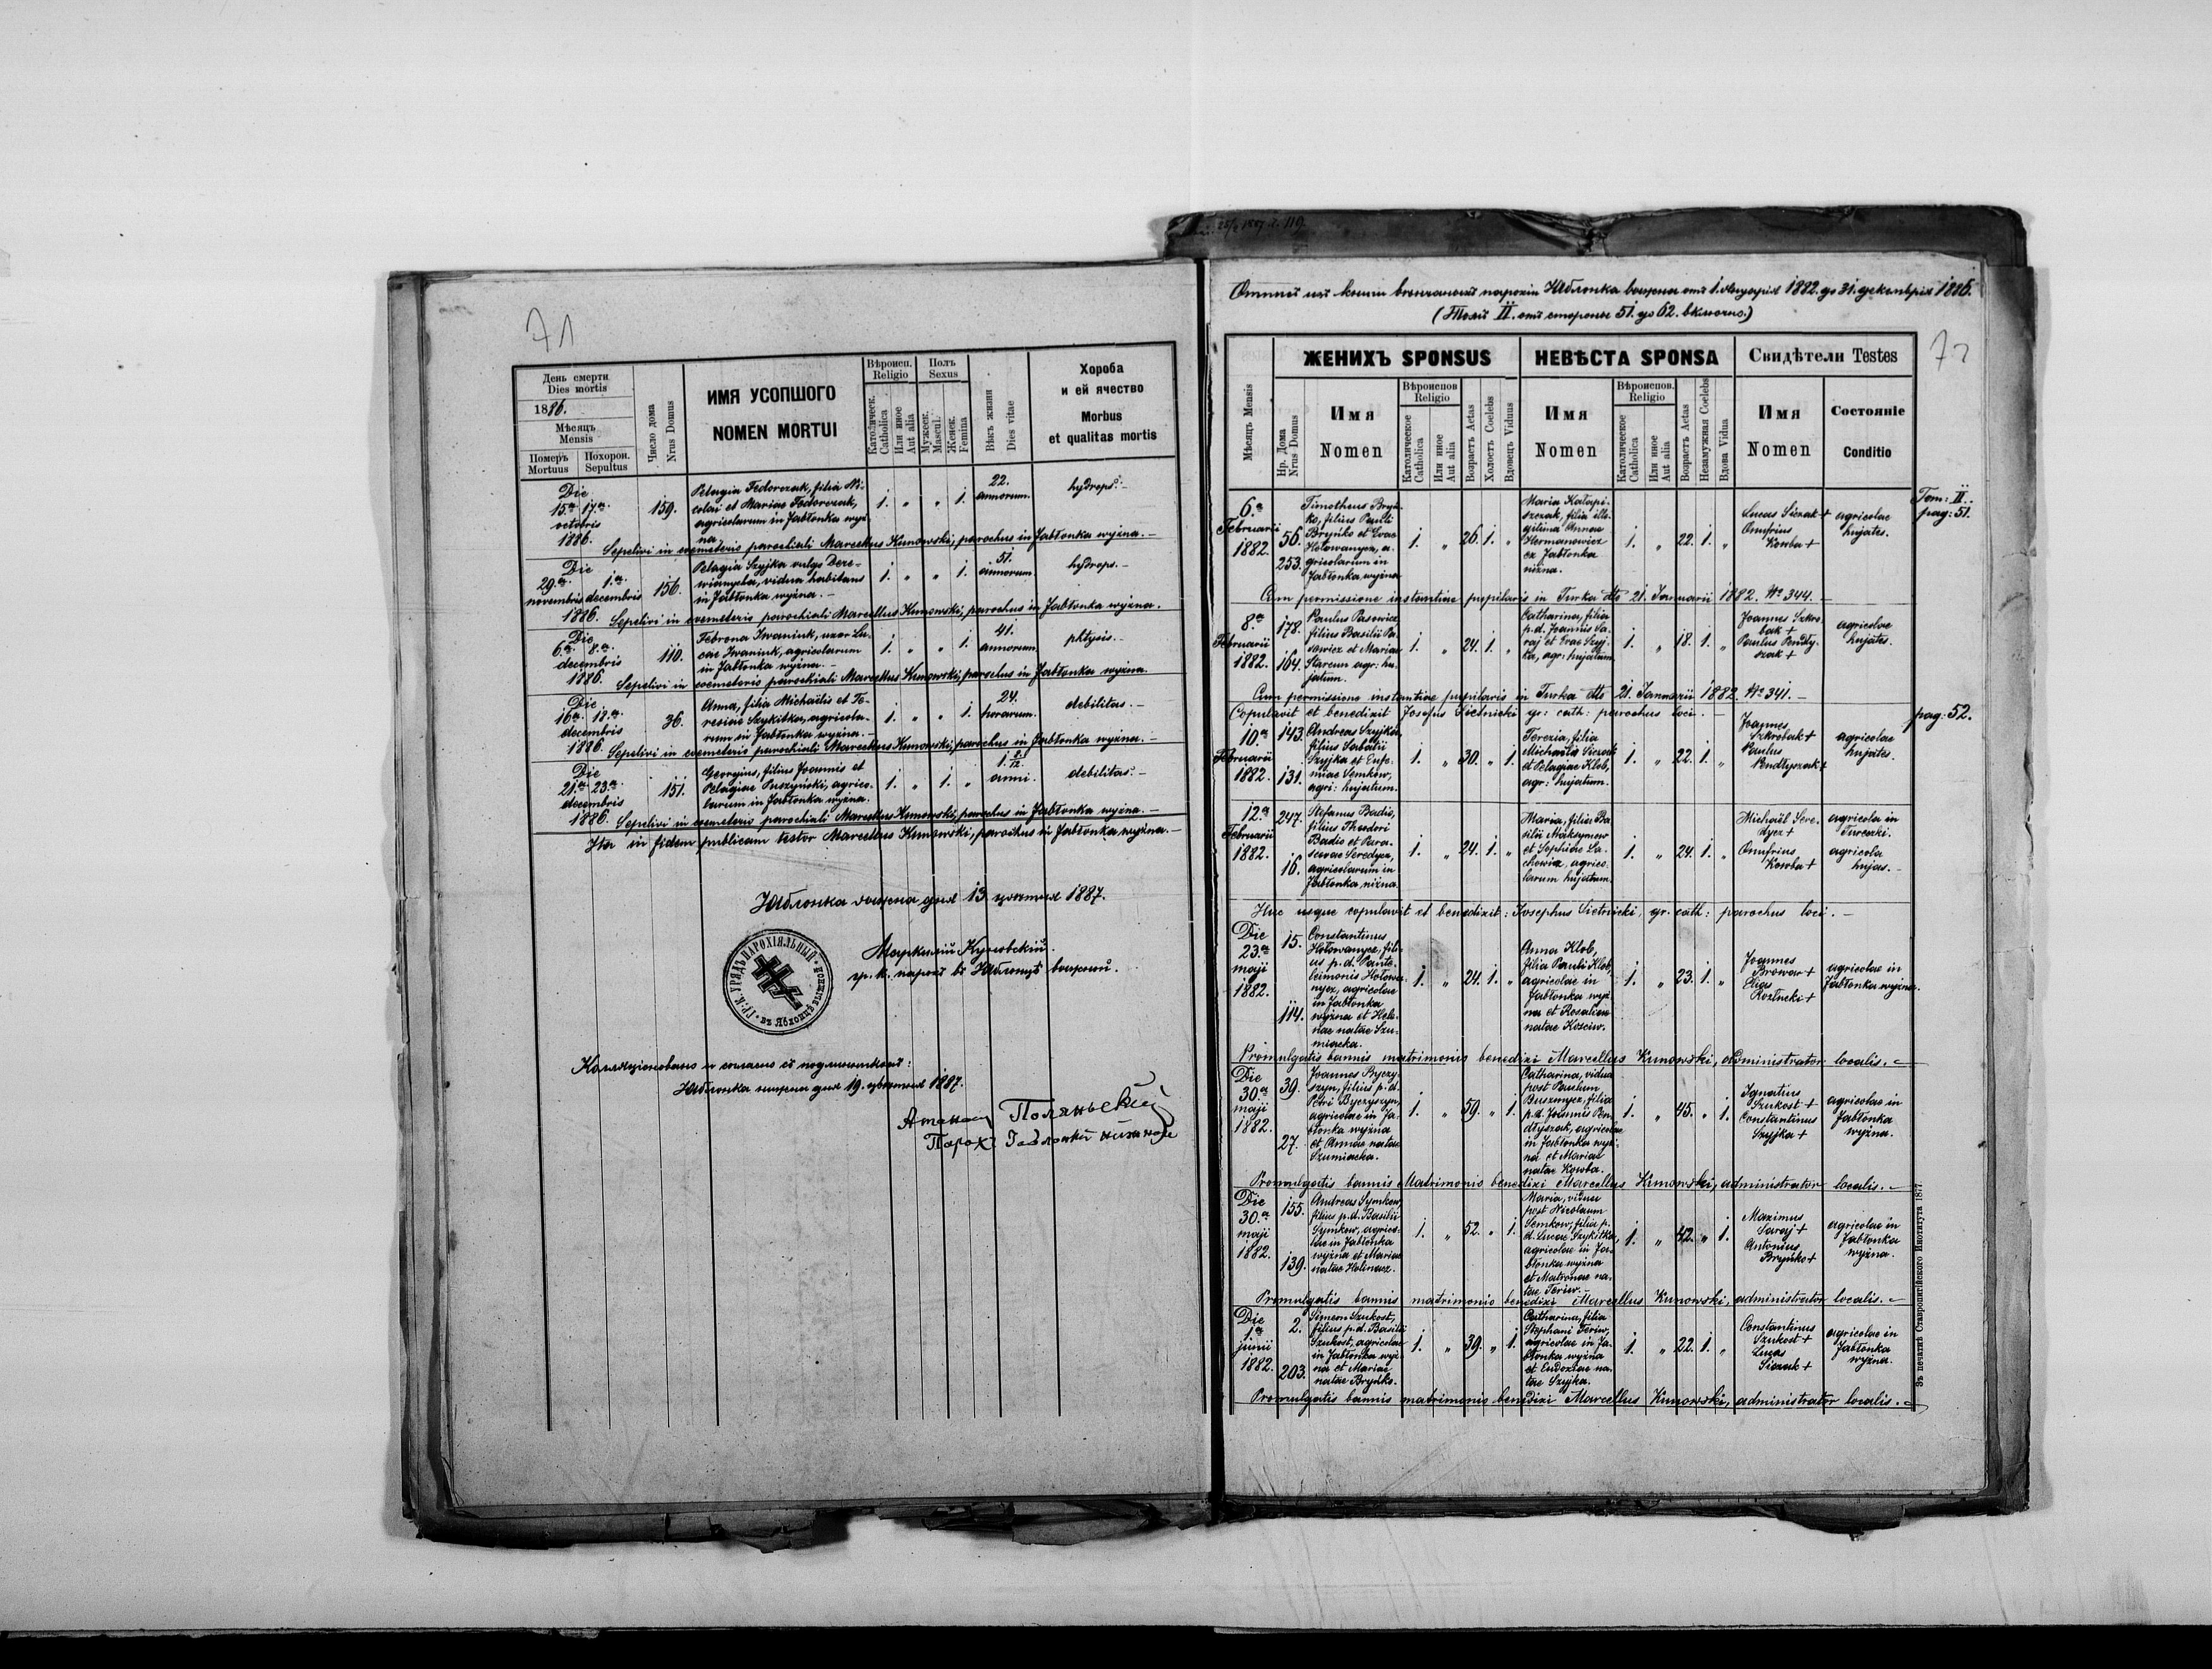 71
День смерти
Dies mortis
1886.
Мѣсяцъ
Mensis
Померъ
Mortuus
Похорон.
Sepultus
Число дома
Nrus Domus
ИМЯ УСОПШОГО
NOMEN MORTUI
Вѣроисп.
Religio
Католическ.
Catholica
Или иное
Aut alia
Полъ
Sexus
Мужеск.
Mascul.
Женск.
Femina
Вѣкъ жизни
Dies vitae
Хороба
и ей ячество
Morbus
et qualitas mortis
Die
15a 17a
octobris
1886.
159.
Pelagia Fedorczak, filia Ni-
colai et Mariae Fedorczak,
agricolarum in Jabłonka wyż-
na
1. „ „ 1.
22.
annorum.
hydrops.-
Sepelivi in coemeterio parochiali Marcellus Kunowski, parochus in Jabłonka wyżna.-
Die
29a 1a
novembris decembris
1886.
156.
Pelagia Szyjka vulgo Dere-
wianycha, vidua habitans
in Jabłonka wyżna.-
1. „ „ 1.
51.
annorum
hydrops.-
Sepelivi in coemeterio parochiali Marcellus Kunowski, parochus in Jabłonka wyżna.
Die
6a 8a
decembris
1886.
110.
Febrona Iwaniuk, uxor Lu-
cae Iwaniuk, agricolarum
in Jabłonka wyżna.-
1. „ „ 1.
41.
annorum
phtysis.-
Sepelivi in coemeterio parochiali Marcellus Kunowski, parochus in Jabłonka wyżna
Die
16a 18a
decembris
1886.
36.
Anna, filia Michaëlis et Te-
resiae Szykitka, agricola-
rum in Jabłonka wyżna.-
1. „ „ 1.
24.
horarum.
debilitas.-
Sepelivi in coemeterio parochiali Marcellus Kunowski, parochus in Jabłonka wyżna.-
Die
21a 23a
decembris
1886.
151.
Georgius, filius Joannis et
Pelagiae Puszyński, agrico-
larum in Jabłonka wyżna.
1. „ 1. „
anni.
debilitas.-
Sepelivi in coemeterio parochiali Marcellus Kunowski, parochus in Jabłonka wyżna.-
Ita in fidem publicam testor Marcellus Kunowski, parochus in Jabłonka wyżna.-
Яблонка выжна дня 13 цвѣтня 1887.
ГР. К. УРЯДЪ ПАРОХІЯЛЬНЫЙ
Маркиллій Куновскій.
гр. к. парохъ въ Яблонцѣ выжной.
Коляціоновано и согласно съ подлинникомъ:
Яблонка нижна дня 19. цвѣтня 1887.
Поляньскій
Парох Яблонки нижнои
72
Tom: II.
pag: 51.
(Томъ II. отъ стороны 51. до 62. включно.)
Мѣсяцъ Mensis
Нр. Дома
Nrus Domus
ЖЕНИХЪ SPONSUS
Имя
Nomen
Вѣроиспов
Religio
Католическое
Catholica
Или иное
Aut alia
Возрастъ Aetas
Холостъ Coelebs
Вдовецъ Viduus
НЕВѢСТА SPONSA
Имя
Nomen
Вѣроиспов.
Religio
Католическое
Catholica
Или иное
Aut alia
Возрастъ Aetas
Незамужная Coelebs
Вдова Vidua
Свидѣтели Testes
Имя
Nomen
Состояніе
Conditio
6a
Februarii
1882.
56.
253.
Timotheus Bryń-
ko, filius Pauli
Bryńko et Evae
Hołowanycz, a-
gricolarum in
Jabłonka wyżna
1. „ 26. 1. „
Maria Katapi-
szczak, filia ille-
gitima Annae
Hermanowicz
ex Jabłonka
niżna.
1. „ 22. 1. „
Lucas Siczak +
Onufrius
Kowba +
agricolae
hujates.
Cum permissione instantiae pupilaris in Turka dto 21. Januarii 1882. No 344.-
8a
Februarii
1882.
178.
164.
Paulus Pasowicz
filius Basilii Pa-
sowicz et Mariae
Starcun agr: hu-
jatum.
1. „ 24. 1. „
Catharina, filia
p.d. Joannis Sa-
raj et Evae Szyj-
ka, agr: hujatum
1. „ 18. 1. „
Joannes Szkro-
bak +
Paulus Pendły-
szak +
agricolae
hujates.
Cum permissione instantiae pupilaris in Turka dto 21. Januarii 1882. No 341.-
Copulavit et benedixit Josefus Sietnicki gr: cath: parochus loci.-
pag: 52.
10a
Februarii
1882.
143.
131.
Andreas Szyjka,
filius Sabatii
Szyjka et Eufe-
miae Semków,
agri: hujatum.
1. „ 30. „ 1.
Terezia, filia
Michaëlis Siczak
et Pelagiae Klob,
agr: hujatum.
1. „ 22. 1. „
Joannes
Szkrobak +
Paulus
Pendłyszak +
agricolae
hujates.
12a
Februarii
1882.
247.
16.
Stefanus Badio,
filius Theodori
Badio et Para-
scevae Seredycz,
agricolarum in
Jabłonka niżna.
1. „ 24. 1. „
Maria, filia Ba-
silii Maksymow
et Sophiae Sa-
chowicz, agrico-
larum hujatum.
1. „ 24. 1. „
Michaël Sere-
dycz +
Onufrius
Kowba +
agricola in
Tureczki.
agricola
hujas.-
Huc usque copulavit et benedixit: Josephus Sietnicki, gr. cath: parochus loci.-
Die
23a
maji
1882.
15.
114.
Constantinus
Hołowanycz, fili-
us p.d. Pante-
leimonis Hołowa-
nycz, agricolae
in Jabłonka
wyżna et Hele-
nae natae Szu-
miacka.
1. „ 24. 1. „
Anna Klob,
filia Pauli Klob,
agricolae in
Jabłonka wyż-
na et Rosaliae
natae Kosciw.
1. „ 23. 1. „
Joannes
Browar +
Elias
Rozłucki +
agricolae in
Jabłonka wyżna.
Promulgatis bannis matrimonio benedixi Marcellus Kunowski, administrator localis.-
Die
30a
maji
1882.
39.
27.
Joannes Byczy-
szyn, filius p.d.
Petri Byczyszyn,
agricolae in Ja-
błonka wyżna
et Annae natae
Szumiacka.
1. „ 59. „ 1.
Catharina, vidua
post Paulum
filia
p.d. Joannis Pen-
dłyszak, agricolae
in Jabłonka wyż-
na et Mariae
natae Kowba.
1. „ 45. „ 1.
Ignatius
Szukost +
Constantinus
Szyjka +
agricolae in
Jabłonka
wyżna.
Promulgatis bannis Matrimonio benedixi Marcellus Kunowski, administrator localis.-
Die
30a
maji
1882.
155.
139.
Andreas Symkow,
filius p.d. Basilii
Symkow, agrico-
lae in Jabłonka
wyżna et Mariae
natae Holinacz.
1. „ 52. „ 1.
Maria, vidua
post Nicolaum
Semkow, filia p.
d. Lucae Szykitka,
agricolae in Ja-
błonka wyżna
et Matronae na-
tae Feriw.
1. „ 42. „ 1.
Maximus
Saraj +
Antonius
Bryńko +
agricolae in
Jabłonka
wyżna.
Promulgatis bannis matrimonio benedixi Marcellus Kunowski, administrator localis.-
Die
1a
junii
1882.
2.
203.
Simeon Szukost,
filius p.d. Basilii
Szukost, agricolae
in Jabłonka wyż-
na et Mariae
natae Bryńko.
1. „ 39. „ 1.
Catharina, filia
Stephani Feriw,
agricolae in Ja-
błonka wyżna
et Eudoxiae na-
tae Szyjka.
1. „ 22. 1. „
Constantinus
Szukost +
Lucas
Siczak +
agricolae in
Jabłonka
wyżna.
Promulgatis bannis matrimonio benedixi Marcellus Kunowski, administrator localis.-
Зъ печатнѣ Ставропигійского Института 1877.